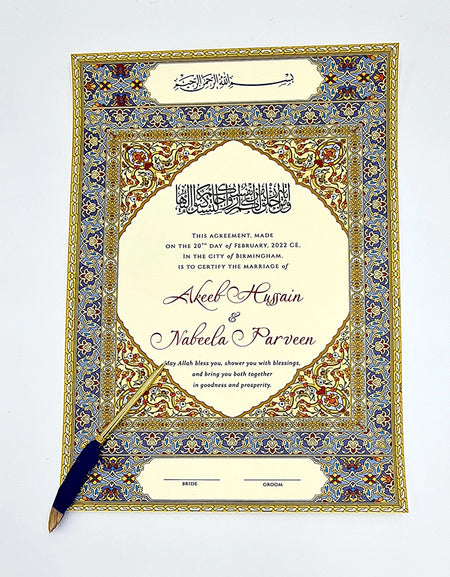 بسم الله الرحمن الرحيم
THIS AGREEMENT, MADE
ON THE 20TH DAY OF FEBRUARY, 2022 CE,
IN THE CITY OF BIRMINGHAM,
IS TO CERTIFY THE MARRIAGE OF
Akeeb Hussain
&
Nabeela Parveen
May Allah bless you, shower you with blessings,
and bring you both together
in goodness and prosperity.
BRIDE GROOM